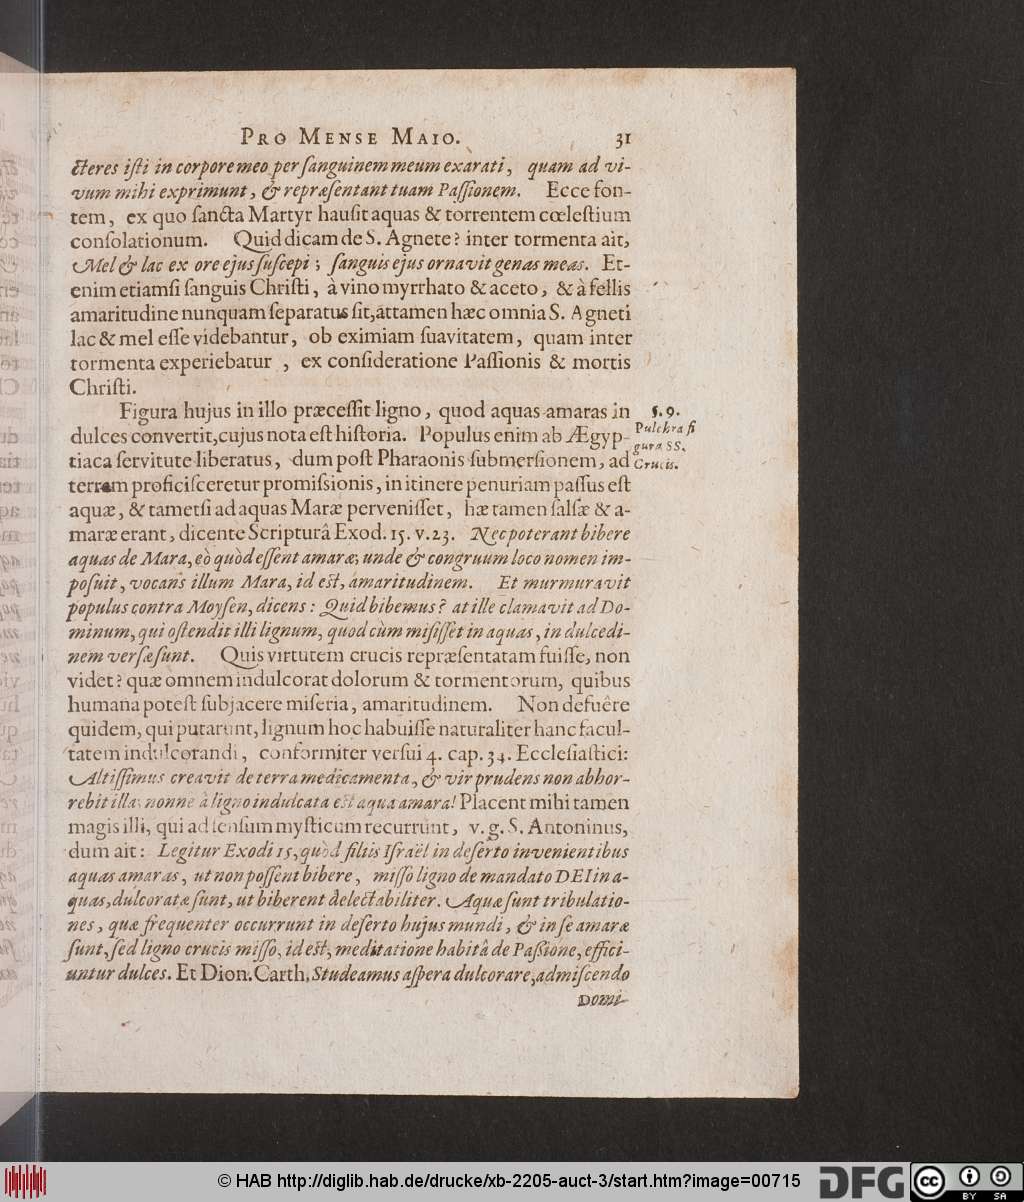 PRO MENSE MAIO. 31
cteres iſti in corpore meo per ſanguinem meum exarati, quam ad vi-
vum mihi exprimunt, & repræſentant tuam Paſſionem. Ecce fon-
tem, ex quo ſancta Martyr hauſit aquas & torrentem cœleſtium
conſolationum. Quid dicam de S. Agnete? inter tormenta ait,
Mel & lac ex ore ejus ſuſcepi; ſanguis ejus ornavit genas meas. Et-
enim etiamſi ſanguis Chriſti, à vino myrrhato & aceto, & à fellis
amaritudine nunquam ſeparatus ſit, attamen hæc omnia S. Agneti
lac & mel eſſe videbantur, ob eximiam ſuavitatem, quam inter
tormenta experiebatur, ex conſideratione Paſſionis & mortis
Chriſti.
Figura hujus in illo præceſſit ligno, quod aquas amaras in
dulces convertit, cujus nota eſt hiſtoria. Populus enim ab Ægyp-
tiaca ſervitute liberatus, dum poſt Pharaonis ſubmerſionem, ad
terram proficiſceretur promiſsionis, in itinere penuriam paſſus eſt
aquæ, & tametſi ad aquas Maræ perveniſſet, hæ tamen ſalſæ & a-
maræ erant, dicente Scripturâ Exod. 15. v. 23. Nec poterant bibere
aquas de Mara, eò quòd eſſent amaræ; unde & congruum loco nomen im-
poſuit, vocans illum Mara, id eſt, amaritudinem. Et murmuravit
populus contra Moyſen, dicens: Quid bibemus? at ille clamavit ad Do-
minum, qui oſtendit illi lignum, quod cùm miſiſſet in aquas, in dulcedi-
nem verſæ ſunt. Quis virtutem crucis repræſentatam fuiſſe, non
videt? quæ omnem indulcorat dolorum & tormentorum, quibus
humana poteſt ſubjacere miſeria, amaritudinem. Non defuêre
quidem, qui putarunt, lignum hoc habuiſſe naturaliter hanc facul-
tatem indulcorandi, conformiter verſui 4. cap. 34. Eccleſiaſtici:
Altiſſimus creavit de terra medicamenta, & vir prudens non abhor-
rebit illa; nonne à ligno indulcata eſt aqua amara! Placent mihi tamen
magis illi, qui ad ſenſum myſticum recurrunt, v. g. S. Antoninus,
dum ait: Legitur Exodi 15, quòd filiis Iſraël in deſerto invenientibus
aquas amaras, ut non poſſent bibere, miſſo ligno de mandato DEI in a-
quas, dulcoratæ ſunt, ut biberent delectabiliter. Aquæ ſunt tribulatio-
nes, quæ frequenter occurrunt in deſerto hujus mundi, & in ſe amaræ
ſunt, ſed ligno crucis miſſo, id eſt, meditatione habitâ de Paſſione, effici-
untur dulces. Et Dion. Carth. Studeamus aſpera dulcorare, admiſcendo
Domi-
§. 9.
Pulchra fi
gura SS.
Crucis.
© HAB http://diglib.hab.de/drucke/xb-2205-auct-3/start.htm?image=00715
DFG
cc
BY SA